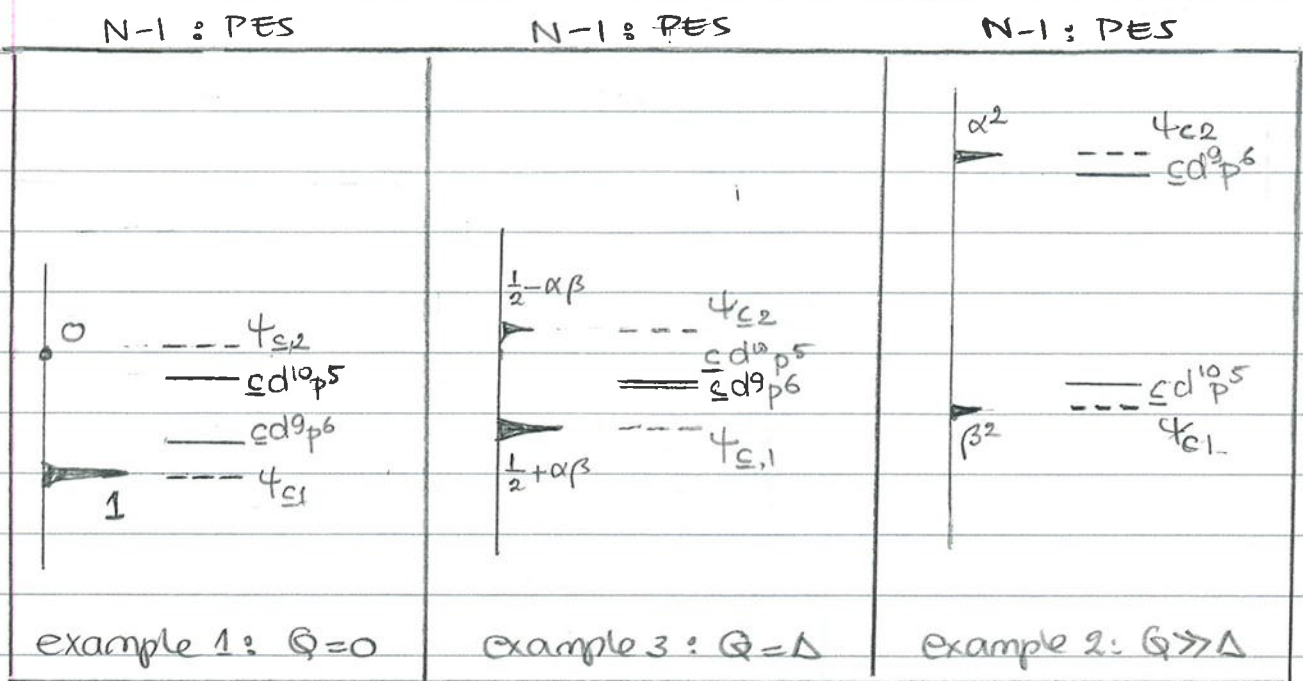 N-1 : PES
N-1 : PES
N-1 : PES
0
ψc,2
cd¹⁰p⁵
cd⁹p⁶
ψc1
1
example 1: Q=0
½-αβ
ψc2
cd¹⁰p⁵
cd⁹p⁶
ψc,1
½+αβ
example 3: Q=Δ
α²
ψc2
cd⁹p⁶
cd¹⁰p⁵
ψc1
β²
example 2: Q≫Δ